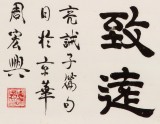 致遠
亮誡子篇句
日於京華
周宏興